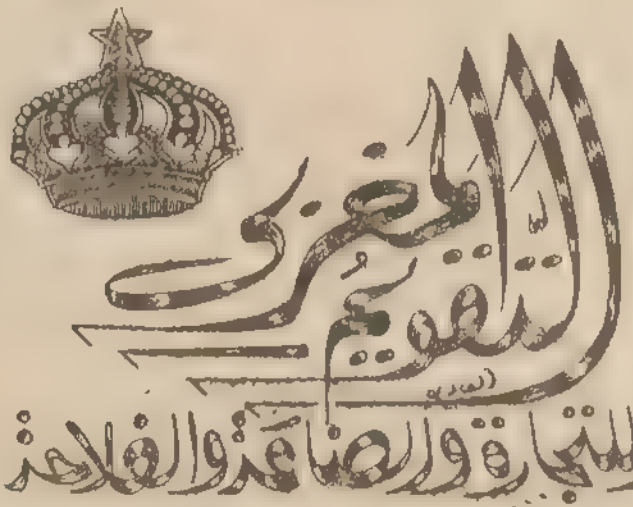 التقويم
المغربي
للتجارة والصناعة والفلاحة